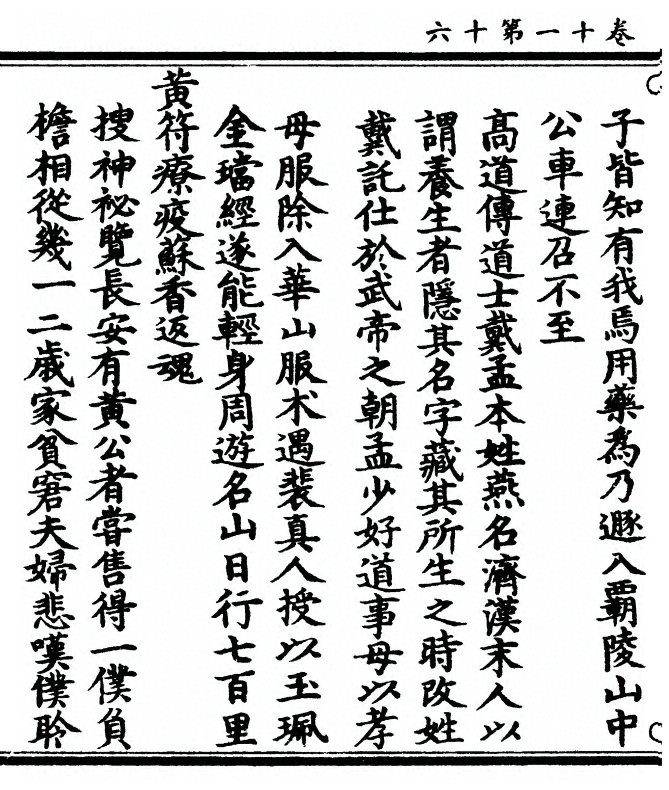 卷十一第十六
子皆知有我焉用藥為乃遯入霸陵山中
公車連召不至
髙道傳道士戴孟本姓燕名濟漢末人以
謂養生者隱其名字藏其所生之時改姓
戴託仕於武帝之朝孟少好道事母以孝
母服除入華山服术遇裴真人授以玉珮
金璫經遂能輕身周遊名山日行七百里
黃符療疫蘇香返魂
搜神祕覽長安有黃公者嘗售得一僕負
檐相從幾一二歲家貧窘夫婦悲嘆僕聆